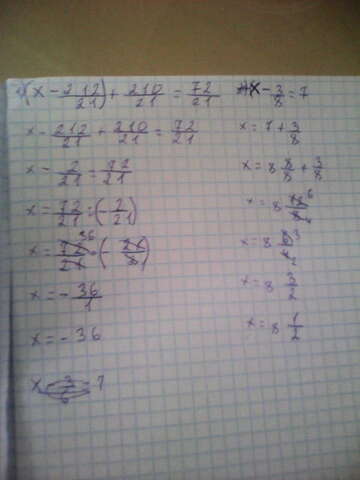 (x - 212/21) + 210/21 = 72/21
x - 212/21 + 210/21 = 72/21
x - 2/21 = 72/21
x = 72/21 : (- 2/21)
x = 72 36/21 · (- 21/2 1)
x = - 36/1
x = - 36
x - 3/8 = 7
x = 7 + 3/8
x = 8 8/8 + 3/8
x = 8
x = 8 6 3/4 2
x = 8 3/2
x = 8 1/2